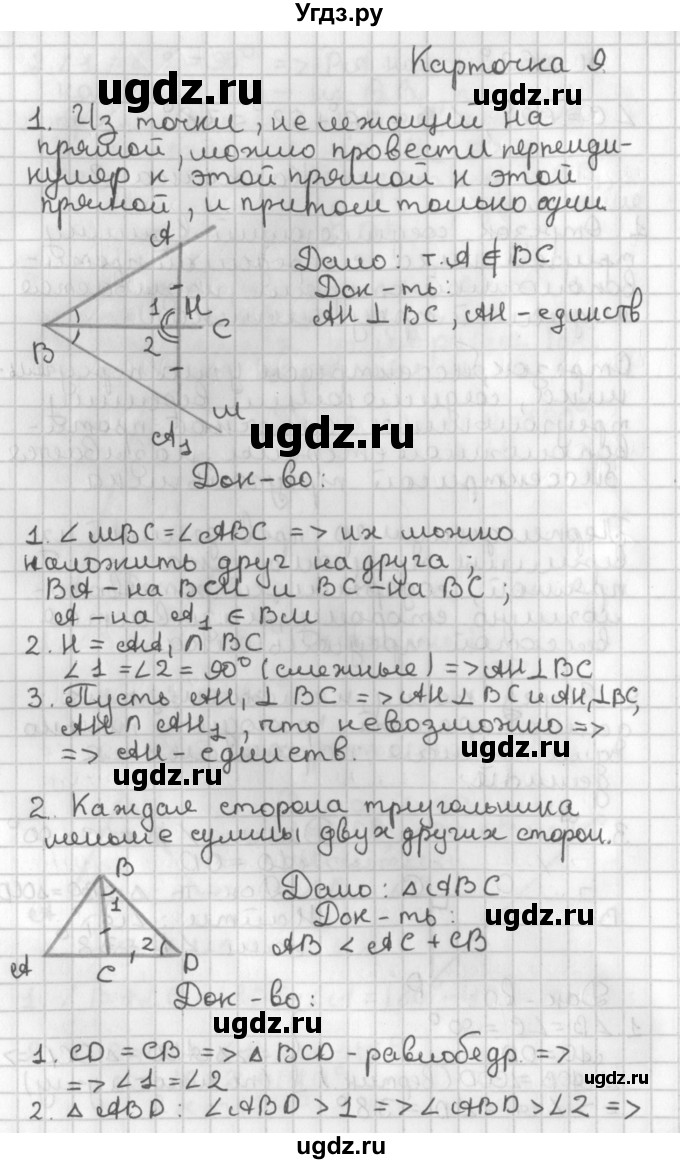 Угдз.ру
Карточка 9.
1. Из точки, не лежащий на
прямой, можно провести перпенди-
куляр к этой прямой к этой
прямой, и притом только один.
A
Дано: т.A ∉ BC
Док-ть:
AH ⊥ BC, AH - единств
1 H
B
2
C
M
A₁
Док-во:
1. ∠MBC = ∠ABC => их можно
наложить друг на друга;
BA - на BM и BC - на BC;
A - на A₁ ∈ BM
2. H = AA₁ ∩ BC
∠1 = ∠2 = 90° (смежные) => AH ⊥ BC
3. Пусть AH₁ ⊥ BC => AH ⊥ BC и AH₁ ⊥ BC,
AH ∩ AH₁, что невозможно =>
=> AH - единств.
2. Каждая сторона треугольника
меньше суммы двух других сторон.
B
Дано: △ABC
1
Док-ть:
2
AB < AC + CB
A
C
D
Док-во:
1. CD = CB => △BCD - равнобедр. =>
=> ∠1 = ∠2
2. △ABD: ∠ABD > 1 => ∠ABD > ∠2 =>
ugdz.ru
ugdz.ru
ugdz.ru
ugdz.ru
ugdz.ru
ugdz.ru
ugdz.ru
ugdz.ru
ugdz.ru
ugdz.ru